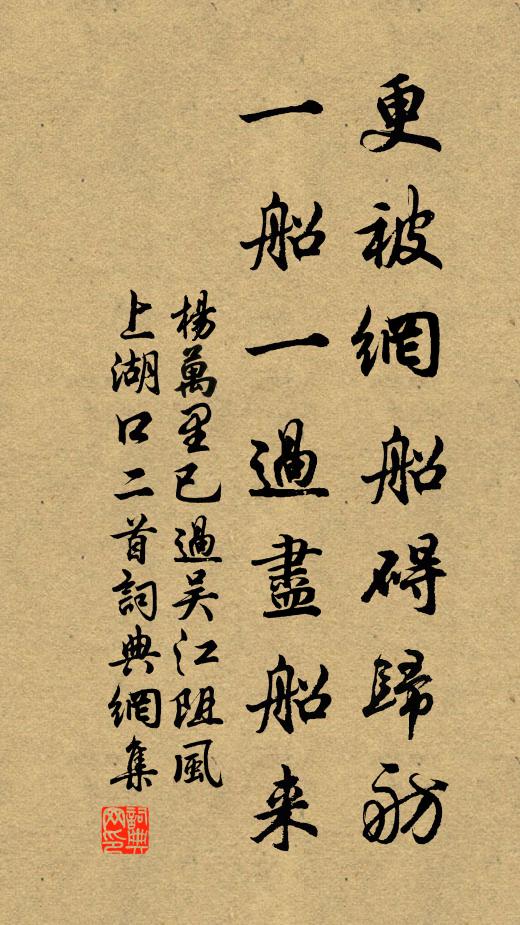 更被網船碍歸舫
一船一過盡船来
楊萬里已過吴江阻風
上湖口二首詞典網集
詞典
网印